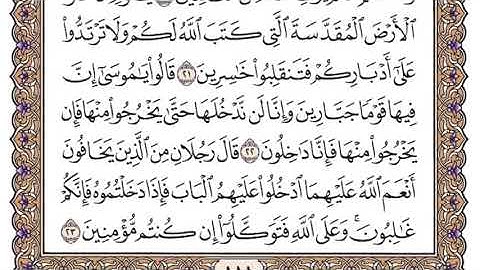 الْأَرْضَ الْمُقَدَّسَةَ الَّتِي كَتَبَ اللَّهُ لَكُمْ وَلَا تَرْتَدُّوا
عَلَىٰ أَدْبَارِكُمْ فَتَنقَلِبُوا خَاسِرِينَ ٢١ قَالُوا يَامُوسَىٰ إِنَّ
فِيهَا قَوْمًا جَبَّارِينَ وَإِنَّا لَن نَّدْخُلَهَا حَتَّىٰ يَخْرُجُوا مِنْهَا فَإِن
يَخْرُجُوا مِنْهَا فَإِنَّا دَاخِلُونَ ٢٢ قَالَ رَجُلَانِ مِنَ الَّذِينَ يَخَافُونَ
أَنْعَمَ اللَّهُ عَلَيْهِمَا ادْخُلُوا عَلَيْهِمُ الْبَابَ فَإِذَا دَخَلْتُمُوهُ فَإِنَّكُمْ
غَالِبُونَ ۚ وَعَلَى اللَّهِ فَتَوَكَّلُوا إِن كُنتُم مُّؤْمِنِينَ ٢٣